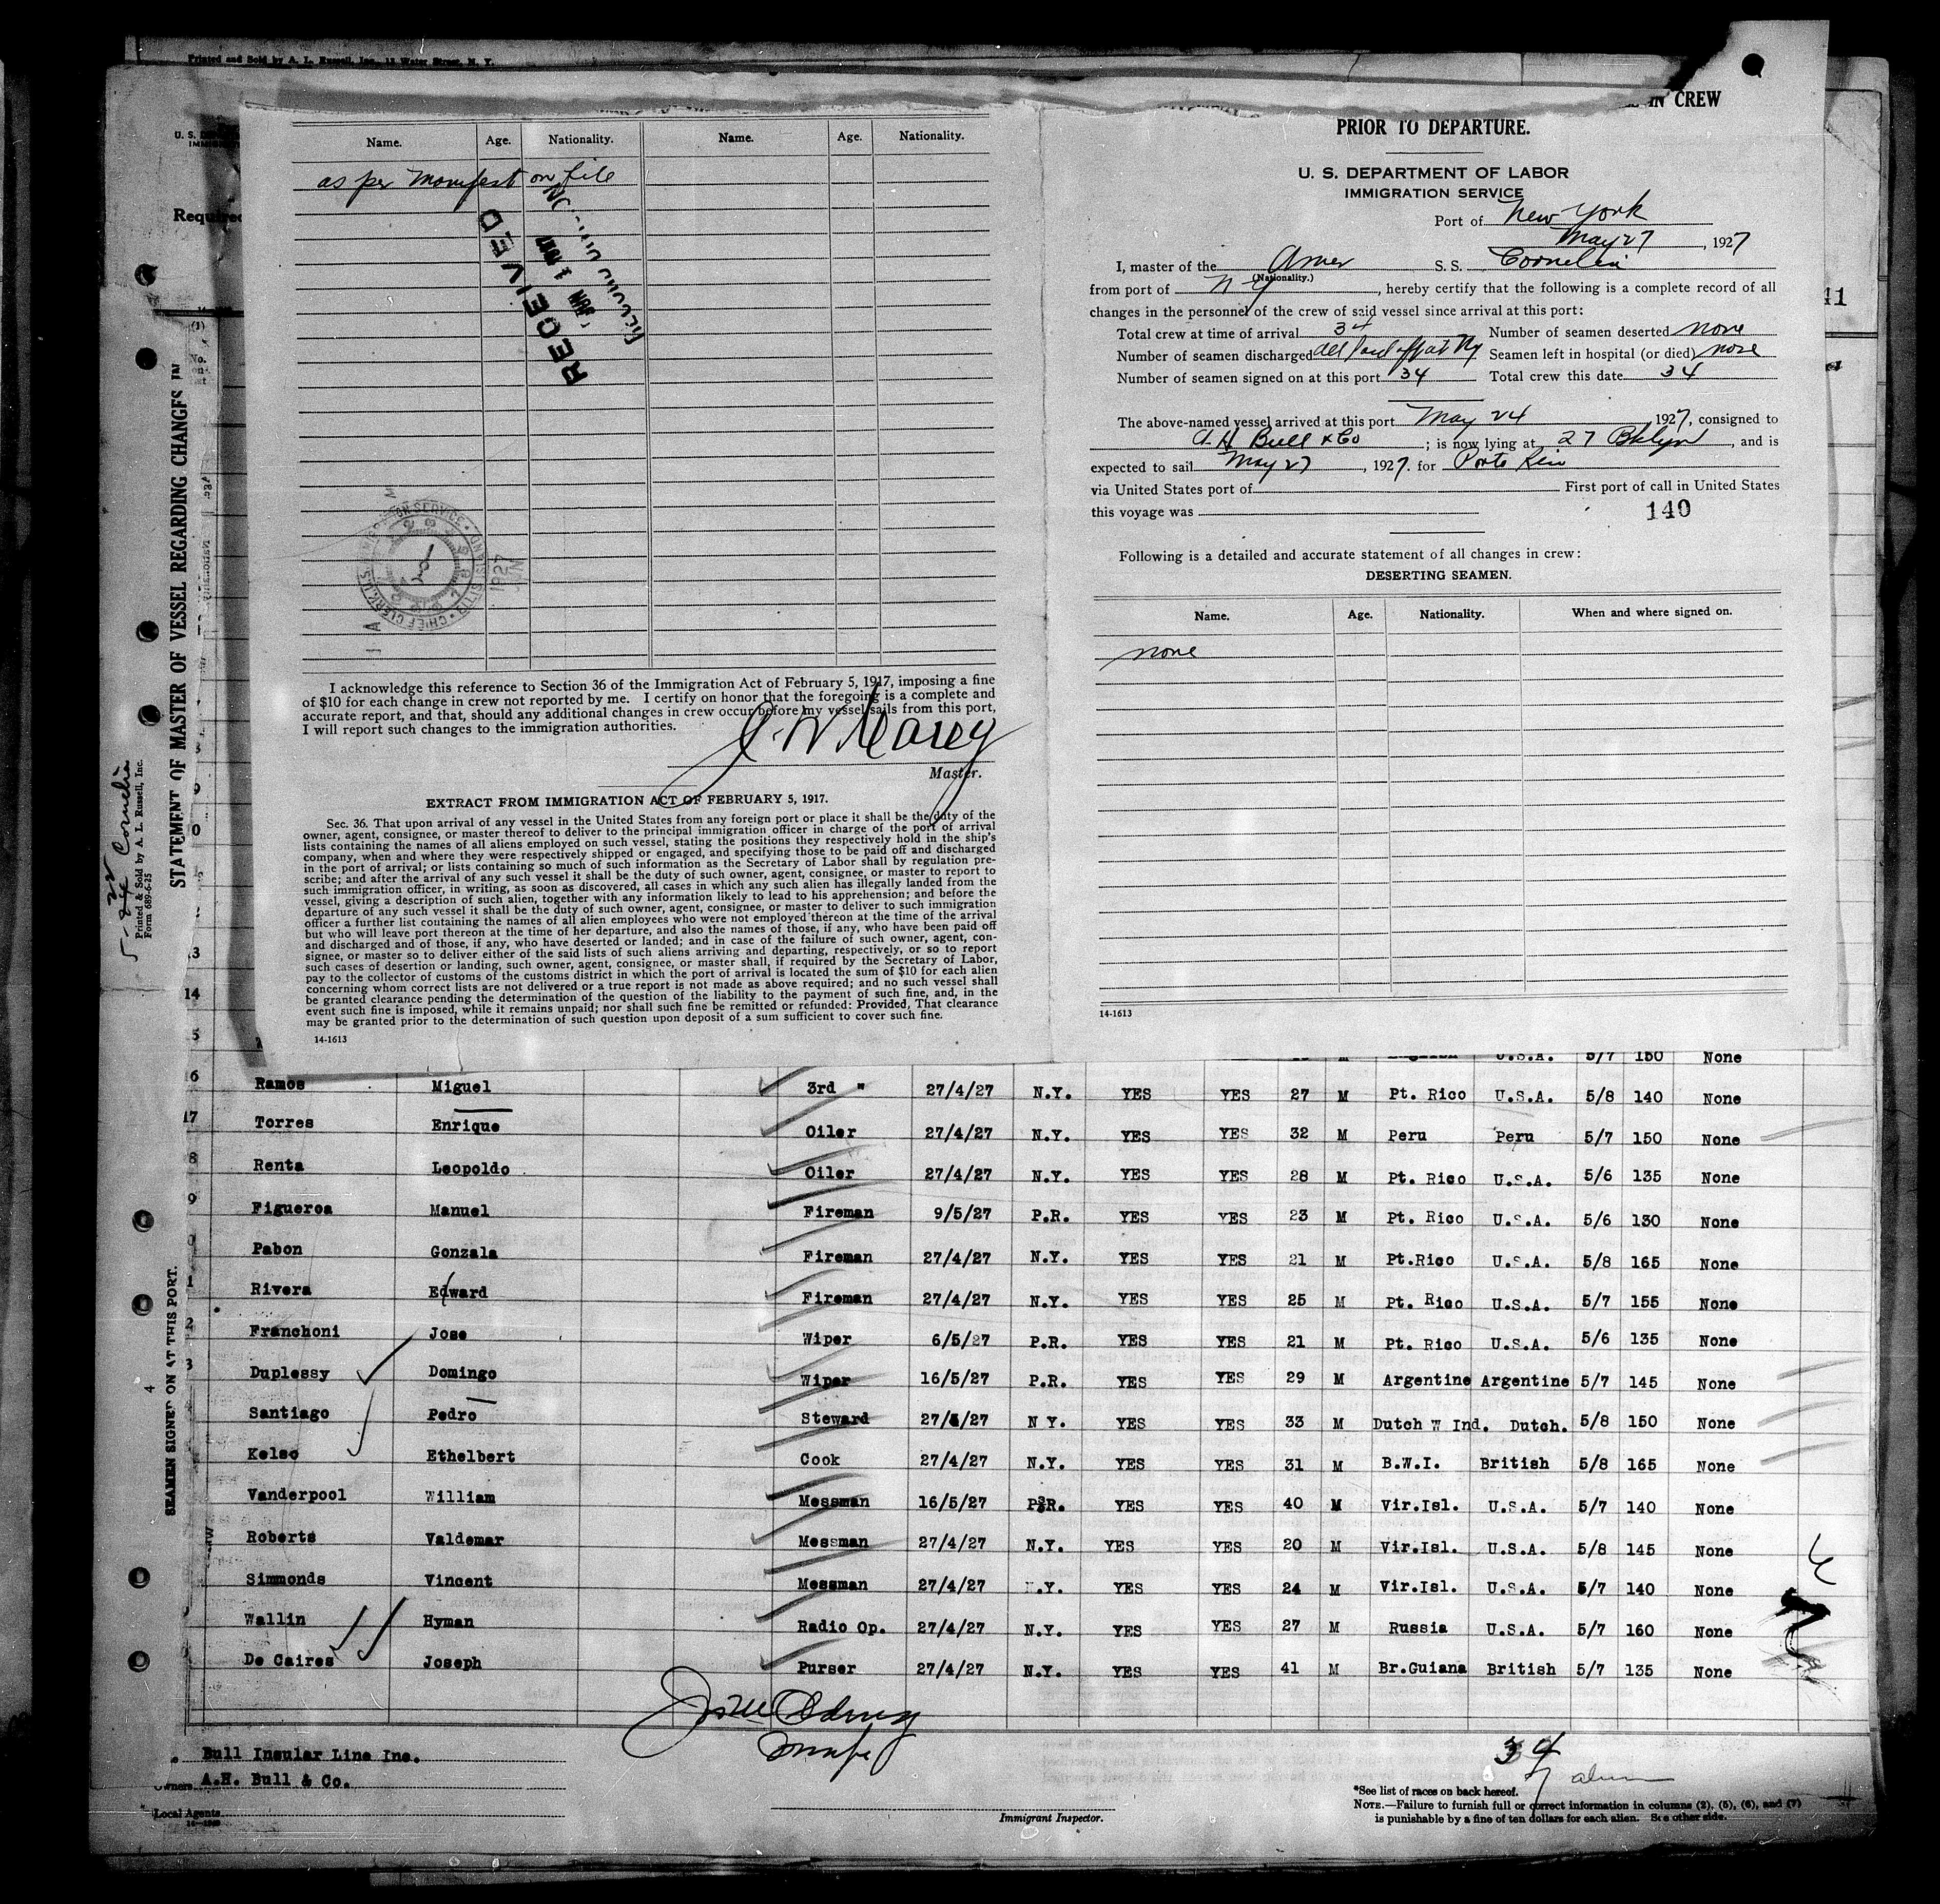 Printed and Sold by A. L. Russell, Inc., 12 Water Street, N. Y.
IN CREW
PRIOR TO DEPARTURE.
U. S. DEPARTMENT OF LABOR
IMMIGRATION SERVICE
Port of New York
May 27, 1927
I, master of the Amer S. S. Cornelia
(Nationality.)
from port of N Y, hereby certify that the following is a complete record of all
changes in the personnel of the crew of said vessel since arrival at this port:
Total crew at time of arrival 34 Number of seamen deserted none
Number of seamen discharged all paid off at NY Seamen left in hospital (or died) none
Number of seamen signed on at this port 34 Total crew this date 34
The above-named vessel arrived at this port May 24 1927, consigned to
A. H. Bull & Co; is now lying at 27 Bklyn, and is
expected to sail May 27, 1927. for Porto Rico
via United States port of First port of call in United States
this voyage was
140
Following is a detailed and accurate statement of all changes in crew:
DESERTING SEAMEN.
Name. Age. Nationality. When and where signed on.
none
14-1613
Name. Age. Nationality. Name. Age. Nationality.
as per Manifest on file
RECEIVED
I acknowledge this reference to Section 36 of the Immigration Act of February 5, 1917, imposing a fine
of $10 for each change in crew not reported by me. I certify on honor that the foregoing is a complete and
accurate report, and that, should any additional changes in crew occur before my vessel sails from this port,
I will report such changes to the immigration authorities.
Master.
EXTRACT FROM IMMIGRATION ACT OF FEBRUARY 5, 1917.
Sec. 36. That upon arrival of any vessel in the United States from any foreign port or place it shall be the duty of the
owner, agent, consignee, or master thereof to deliver to the principal immigration officer in charge of the port of arrival
lists containing the names of all aliens employed on such vessel, stating the positions they respectively hold in the ship's
company, when and where they were respectively shipped or engaged, and specifying those to be paid off and discharged
in the port of arrival; or lists containing so much of such information as the Secretary of Labor shall by regulation pre-
scribe; and after the arrival of any such vessel it shall be the duty of such owner, agent, consignee, or master to report to
such immigration officer, in writing, as soon as discovered, all cases in which any such alien has illegally landed from the
vessel, giving a description of such alien, together with any information likely to lead to his apprehension; and before the
departure of any such vessel it shall be the duty of such owner, agent, consignee, or master to deliver to such immigration
officer a further list containing the names of all alien employees who were not employed thereon at the time of the arrival
but who will leave port thereon at the time of her departure, and also the names of those, if any, who have been paid off
and discharged and of those, if any, who have deserted or landed; and in case of the failure of such owner, agent, con-
signee, or master so to deliver either of the said lists of such aliens arriving and departing, respectively, or so to report
such cases of desertion or landing, such owner, agent, consignee, or master shall, if required by the Secretary of Labor,
pay to the collector of customs of the customs district in which the port of arrival is located the sum of $10 for each alien
concerning whom correct lists are not delivered or a true report is not made as above required; and no such vessel shall
be granted clearance pending the determination of the question of the liability to the payment of such fine, and, in the
event such fine is imposed, while it remains unpaid; nor shall such fine be remitted or refunded: Provided, That clearance
may be granted prior to the determination of such question upon deposit of a sum sufficient to cover such fine.
14-1613
STATEMENT OF MASTER OF VESSEL REGARDING CHANGES IN
SEAMEN SIGNED ON AT THIS PORT.
4
Cornelia
Printed & Sold by A. L. Russell, Inc.
Form 689-6-25
41
14
U.S.A. 5/7 150 None
16 Ramos Miguel 3rd " 27/4/27 N.Y. YES YES 27 M Pt. Rico U.S.A. 5/8 140 None
17 Torres Enrique Oiler 27/4/27 N.Y. YES YES 32 M Peru Peru 5/7 150 None
8 Renta Leopoldo Oiler 27/4/27 N.Y. YES YES 28 M Pt. Rico U.S.A. 5/6 135 None
9 Figueroa Manuel Fireman 9/5/27 P.R. YES YES 23 M Pt. Rico U.S.A. 5/6 130 None
Pabon Gonzala Fireman 27/4/27 N.Y. YES YES 21 M Pt.Rico U.S.A. 5/8 165 None
1 Rivera Edward Fireman 27/4/27 N.Y. YES YES 25 M Pt. Rico U.S.A. 5/7 155 None
2 Franchoni Jose Wiper 6/5/27 P.R. YES YES 21 M Pt. Rico U.S.A. 5/6 135 None
3 Duplessy Domingo Wiper 16/5/27 P.R. YES YES 29 M Argentine Argentine 5/7 145 None
Santiago Pedro Steward 27/4/27 N Y. YES YES 33 M Dutch W Ind. Dutch. 5/8 150 None
Kelso Ethelbert Cook 27/4/27 N.Y. YES YES 31 M B.W.I. British 5/8 165 None
Vanderpool William Messman 16/5/27 P.R. YES YES 40 M Vir.Isl. U.S.A. 5/7 140 None
Roberts Valdemar Messman 27/4/27 N.Y. YES YES 20 M Vir.Isl. U.S.A. 5/8 145 None
Simmonds Vincent Messman 27/4/27 N.Y. YES YES 24 M Vir.Isl. U.S.A. 5/7 140 None
Wallin Hyman Radio Op. 27/4/27 N.Y. YES YES 27 M Russia U.S.A. 5/7 160 None
De Caires Joseph Purser 27/4/27 N.Y. YES YES 41 M Br.Guiana British 5/7 135 None
Bull Insular Line Inc.
Owners A.H. Bull & Co.
Local Agents
Immigrant Inspector.
34
7 alien
*See list of races on back hereof.
NOTE.—Failure to furnish full or correct information in columns (2), (5), (6), and (7)
is punishable by a fine of ten dollars for each alien. See other side.